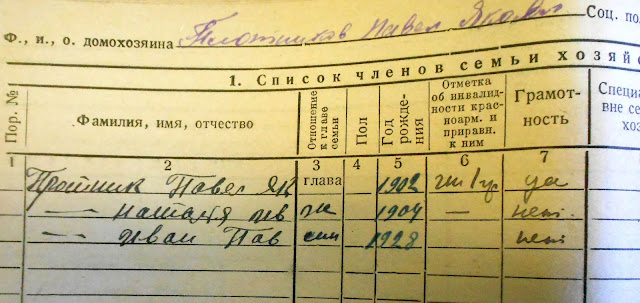 Ф., и., о. домохозяина Плотников Павел Яковл Соц. по
1. Список членов семьи хозяйс
Пор. №
Фамилия, имя, отчество
Отношение
к главе
семьи
Пол
Год
рожде-
ния
Отметка
об инвалид-
ности крас-
ноарм. и
приравн.
к ним
Грамот-
ность
Специа
вне се
хоз
1 2 3 4 5 6 7
Плотник Павел Як глава 1902 да
— Наталя Ив ж 1904 — нет.
— Иван Пав сын 1928 нет